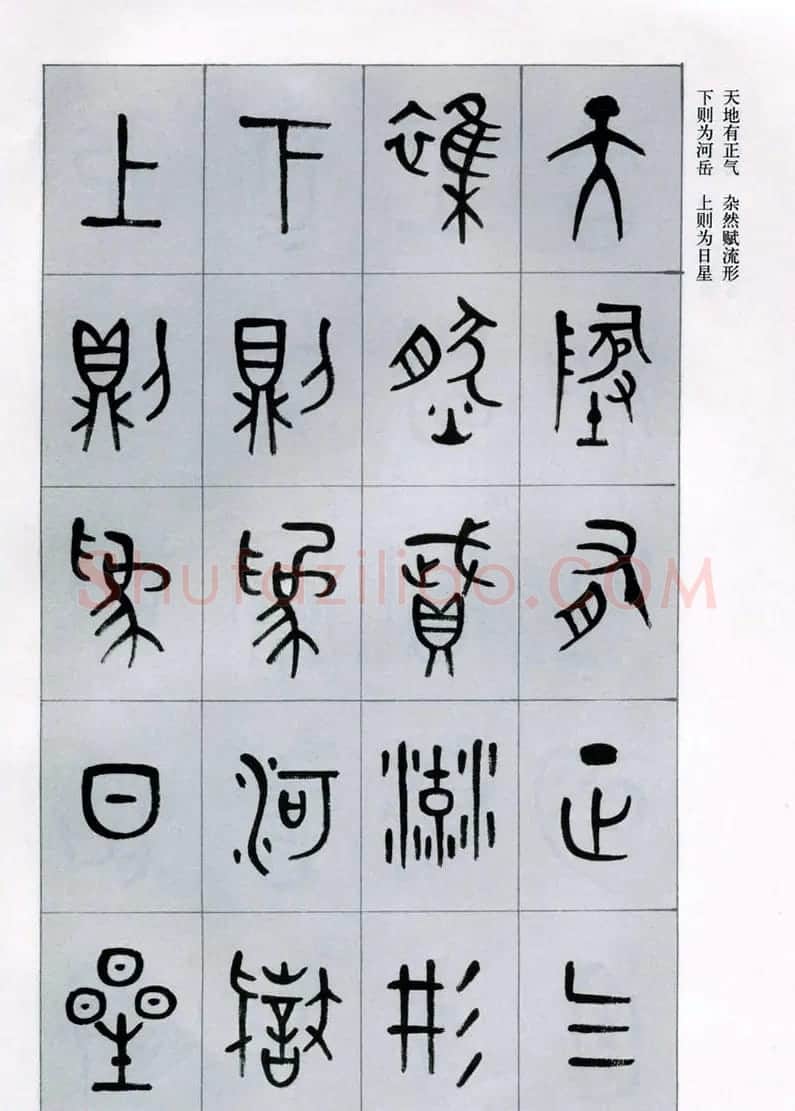 天地有正气 杂然赋流形
下则为河岳 上则为日星
天地有正气
杂然赋流形
下则为河岳
上则为日星
Shufaziliao.COM